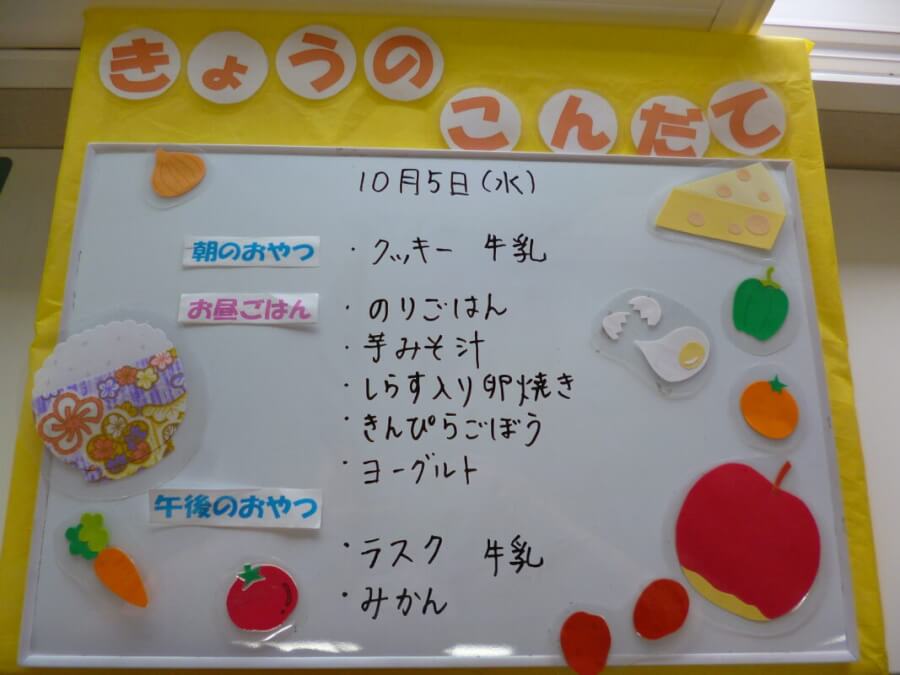 きょうの
こんだて
10月5日(水)
朝のおやつ ・クッキー 牛乳
お昼ごはん ・のりごはん
・芋みそ汁
・しらす入り卵焼き
・きんぴらごぼう
・ヨーグルト
午後のおやつ
・ラスク 牛乳
・みかん